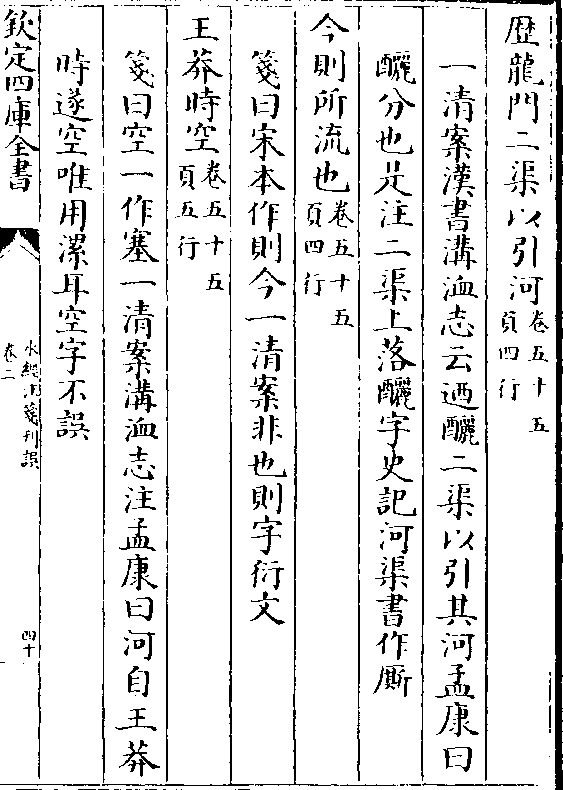 歴龍門二渠以引河卷五十五頁四行
一清案漢書溝洫志云廼釃二渠以引其河孟康曰
釃分也是注二渠上落釃字史記河渠書作廝
今則所流也卷五十五頁四行
箋曰宋本作則今一清案非也則字衍文
王莽時空卷五十五頁五行
箋曰空一作塞一清案溝洫志注孟康曰河自王莽
時遂空唯用漯耳空字不誤
欽定四庫全書
水經注箋刊誤
卷二
四十